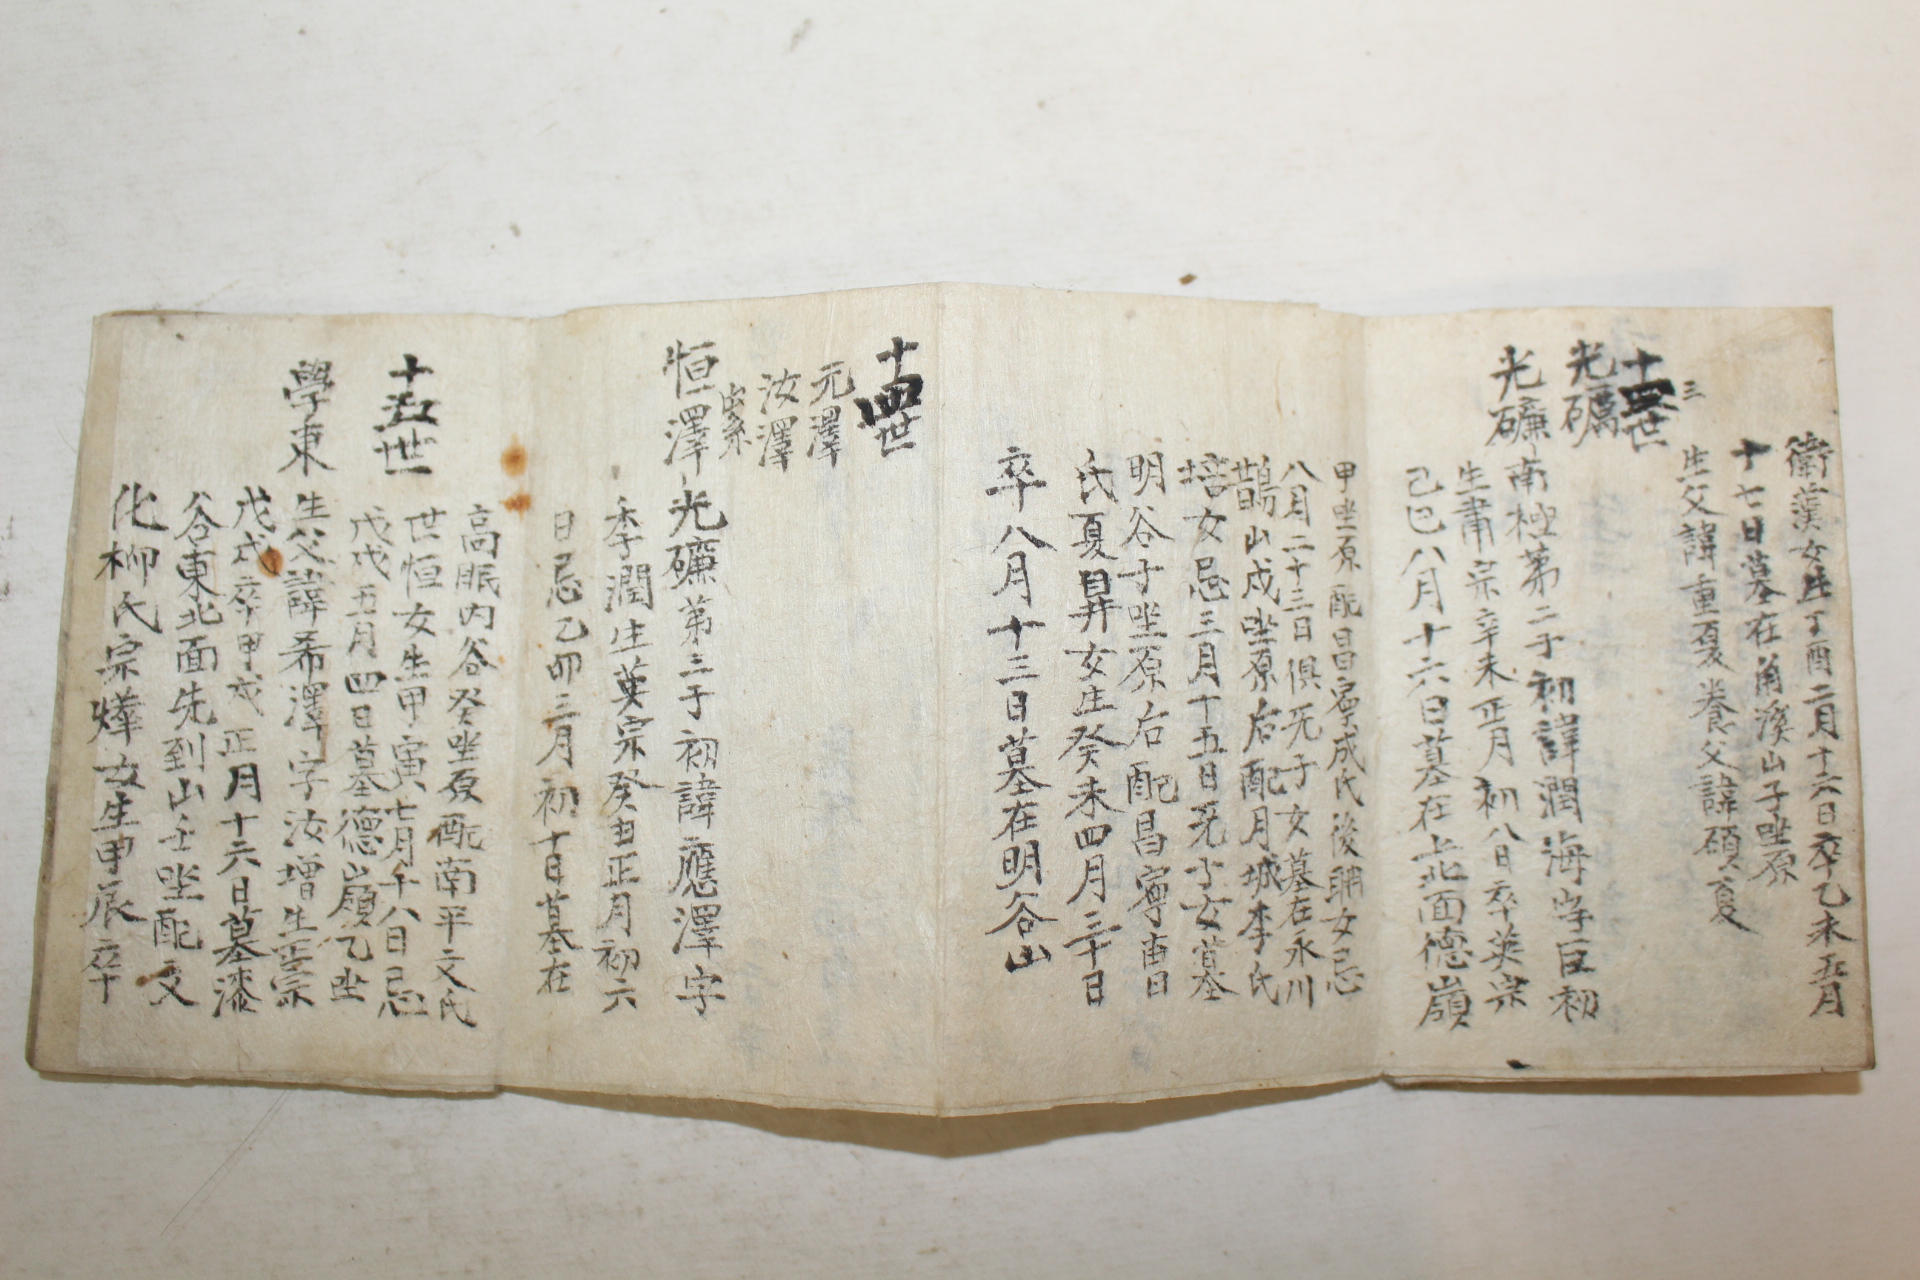 衛漢女生丁酉二月十六日卒乙未五月
十七日墓在角溪山子坐原
生父諱重夏養父諱碩夏
三
十世
光礪
光磏
南極第二子初諱潤海字巨初
生肅宗辛未正月初八日卒英宗
己巳八月十六日墓在上北面德嶺
甲坐原配昌寧成氏後聃女忌
八月二十三日俱无子女墓在永川
鵲山戌坐原后配月城李氏
培女忌三月十五日无子女墓
明谷子坐原后配昌寧曺
氏夏昇女生癸未四月三十日
卒八月十三日墓在明谷山
十四世
元澤
汝澤
出系
恒澤
光磏第三子初諱應澤字
季潤生英宗癸丑正月初六
日忌乙卯三月初十日墓在
高眠內谷癸坐原配南平文氏
世恒女生甲寅七月十八日忌
戊戌五月四日墓德嶺乙坐
十五世
學東
生父諱希澤字汝增生正宗
戊戌卒甲戌正月十六日墓漆
谷東北面先到山壬坐配文
化柳氏宗燁女生甲辰卒